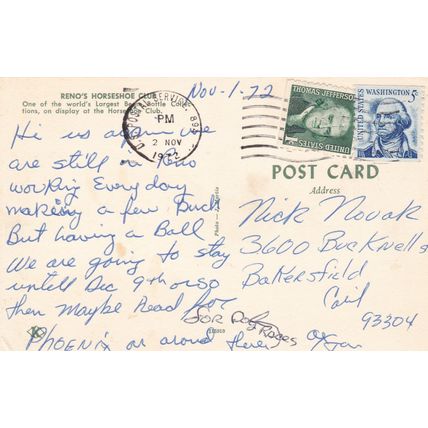 RENO'S HORSESHOE CLUB
One of the world's Largest Bottle Collec-
tions, on display at the Horseshoe Club.
Nov-1-72
U.S. POSTAL SERVICE, 895
PM
2 NOV
1972
THOMAS JEFFERSON
UNITED STATES
WASHINGTON 5c
UNITED STATES
POST CARD
Address
Hi us again we
are still in Reno
working Everyday
making a few Buck
But having a Ball
We are going to stay
untell Dec 9th or so
then Maybe Head for
PHOENIX or around there
FOR Dog RACES
Nick Novak
3600 Bucknell
Bakersfield
Cail
93304
Photo